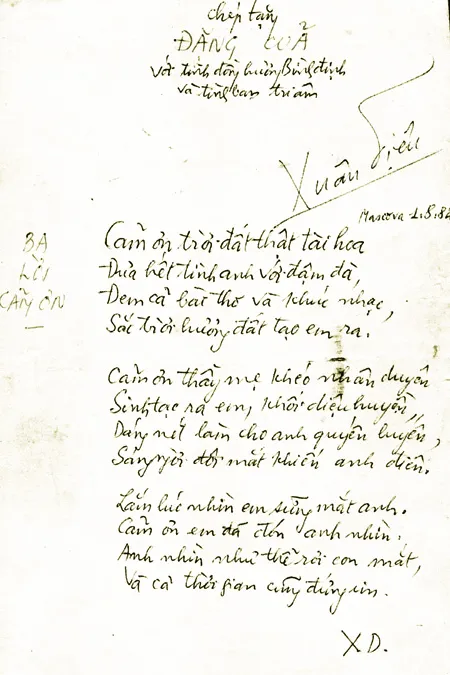 Chép tặng
ĐẶNG QUẢ
với tình đồng hương Bình định
và tình bạn tri âm
Xuân Diệu
Mascova 1.8.82
BA
LỜI
CẢM ƠN
Cảm ơn trời đất thật tài hoa
Đưa hết tinh anh với đậm đà,
Đem cả bài thơ và khúc nhạc,
Sắc trời hương đất tạo em ra.
Cảm ơn thầy mẹ khéo nhân duyên
Sinh tạc ra em, khối diệu huyền,
Dáng nét làm cho anh quyến luyến,
Sáng ngời đôi mắt khiến anh điên.
Lắm lúc nhìn em sững mắt anh.
Cảm ơn em đã đón anh nhìn.
Anh nhìn như thể rời con mắt,
Và cả thời gian cũng đứng im.
X D.